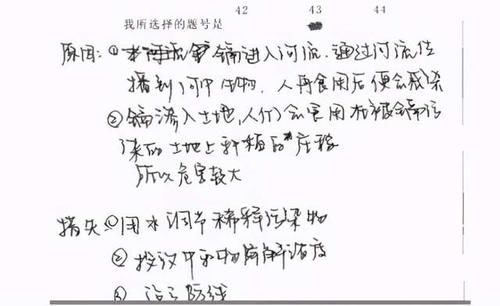 42 43 44
我所选择的题号是
原因:①镉进入河流.通过河流传
播到河中生物,人再食用后便会感染
②镉渗入土地,人们会食用在被镉污
染的土地上种植的庄稼
所以危害较大
措失:①用水调节稀释污染物
②投议中和物降解浓度
③设立防线